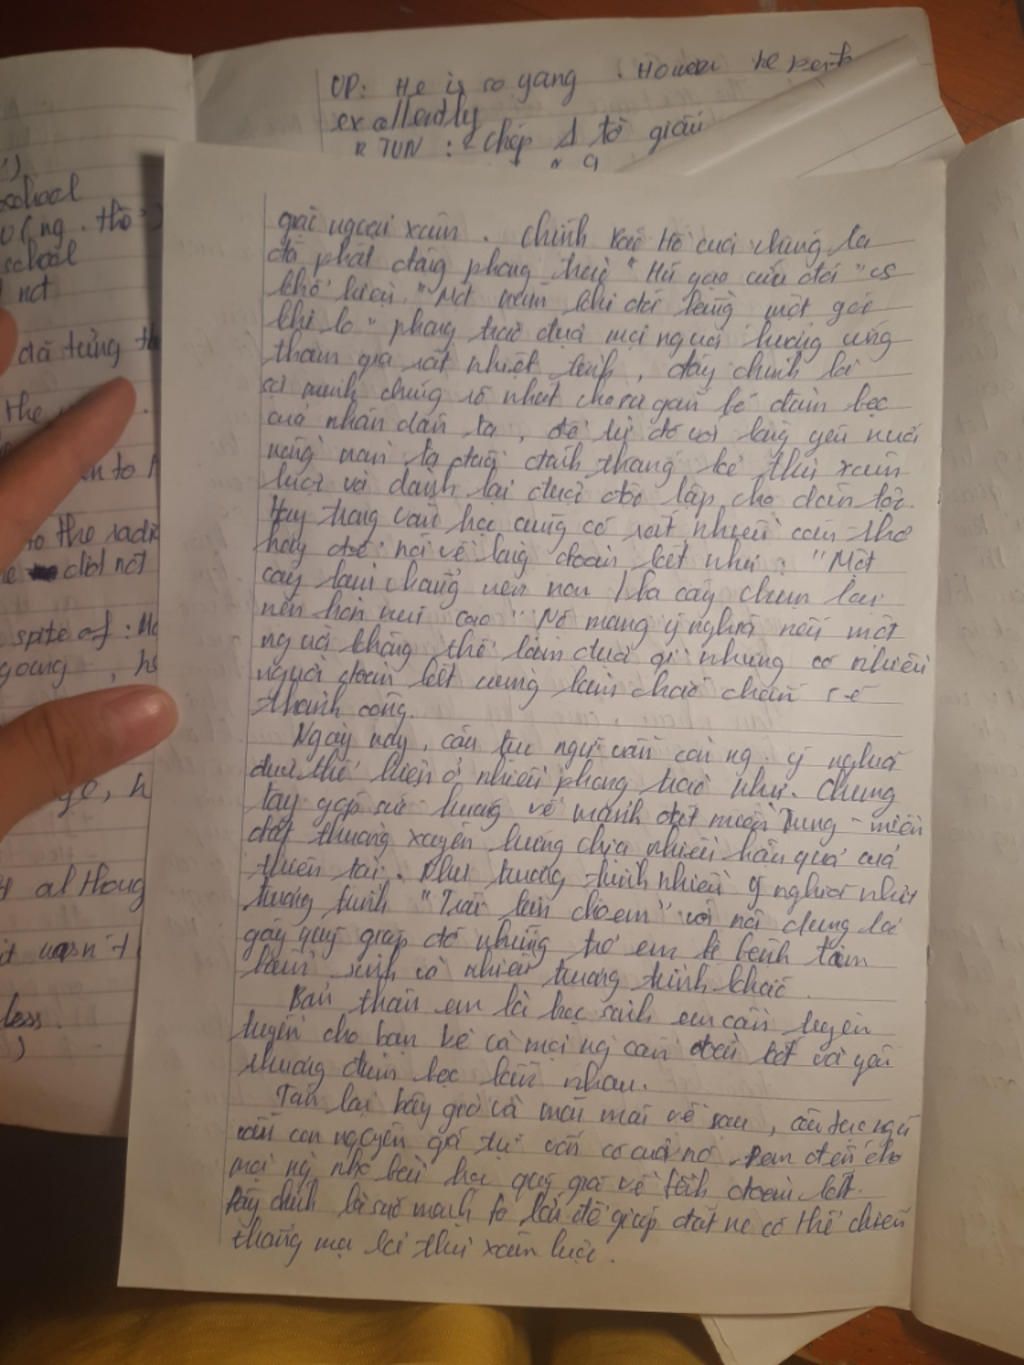 OP: He is so yang . Howev he perf
excellently
R TUN : 2 chép 1 tờ giấy
school
school
not
đã từng th
the
to the radi
did not
spite of : H
young , h
ge, h
althoug
it wasn't
less.
giặc ngoại xâm . Chính Bác Hồ của chúng ta
đã phát động phong trào " Hũ gạo cứu đói " có
khẩu hiệu " Một nắm khi đói bằng một gói
khi lo " phong trào được mọi người hưởng ứng
tham gia rất nhiệt tình , đây chính là
minh chứng rõ nhất cho sự gắn bó đùm bọc
của nhân dân ta , để từ đó với lòng yêu nước
nồng nàn ta đã đánh thắng kẻ thù xâm
lược và dành lại được độc lập cho dân tộc.
Hay trong văn học cũng có rất nhiều câu thơ
hay để nói về lòng đoàn kết như : " Một
cây làm chẳng nên non / ba cây chụm lại
nên hòn núi cao " Nó mang ý nghĩa nếu một
người không thể làm được gì nhưng có nhiều
người đoàn kết cùng làm chắc chắn sẽ
thành công.
Ngày nay , câu tục ngữ vẫn còn ng. ý nghĩa
được thể hiện ở nhiều phong trào như . Chung
tay góp sức hướng về mảnh đất miền Trung - miền
đất thường xuyên hứng chịu nhiều hậu quả của
thiên tai . Như chương trình nhiều ý nghĩa như
chương trình " Trái tim cho em " với nội dung là
gây quỹ giúp đỡ những trẻ em bị bệnh tim
bẩm sinh và nhiều chương trình khác .
Bản thân em là học sinh em cần tuyên
truyền cho bạn bè và mọi ng cần đoàn kết và yêu
thương đùm bọc lẫn nhau.
Tóm lại bây giờ và mãi mãi về sau , câu tục ngữ
vẫn còn nguyên giá trị vốn có của nó . Đem đến cho
mọi ng nhớ bài học quý giá về tình đoàn kết.
Đây chính là sức mạnh to lớn để giúp đất nc có thể chiến
thắng mọi kẻ thù xâm lược .